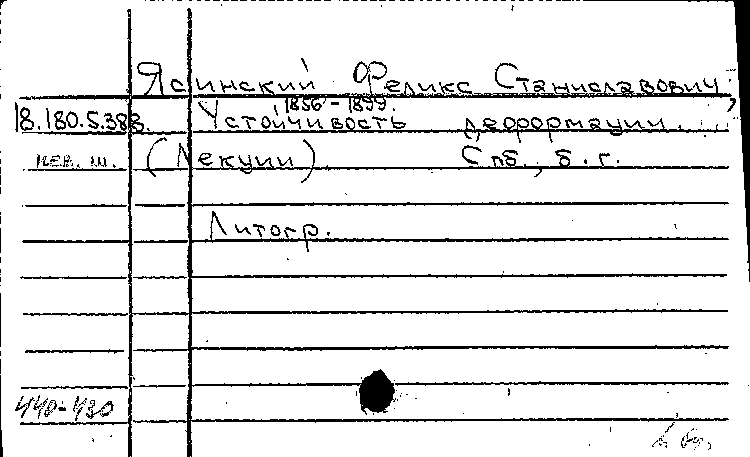 Ясинский Феликс Станиславович
1856 - 1899.
18.180.5.388. Устойчивость деформации....
(Лекции). Спб., б. г.
Литогр.
440-430